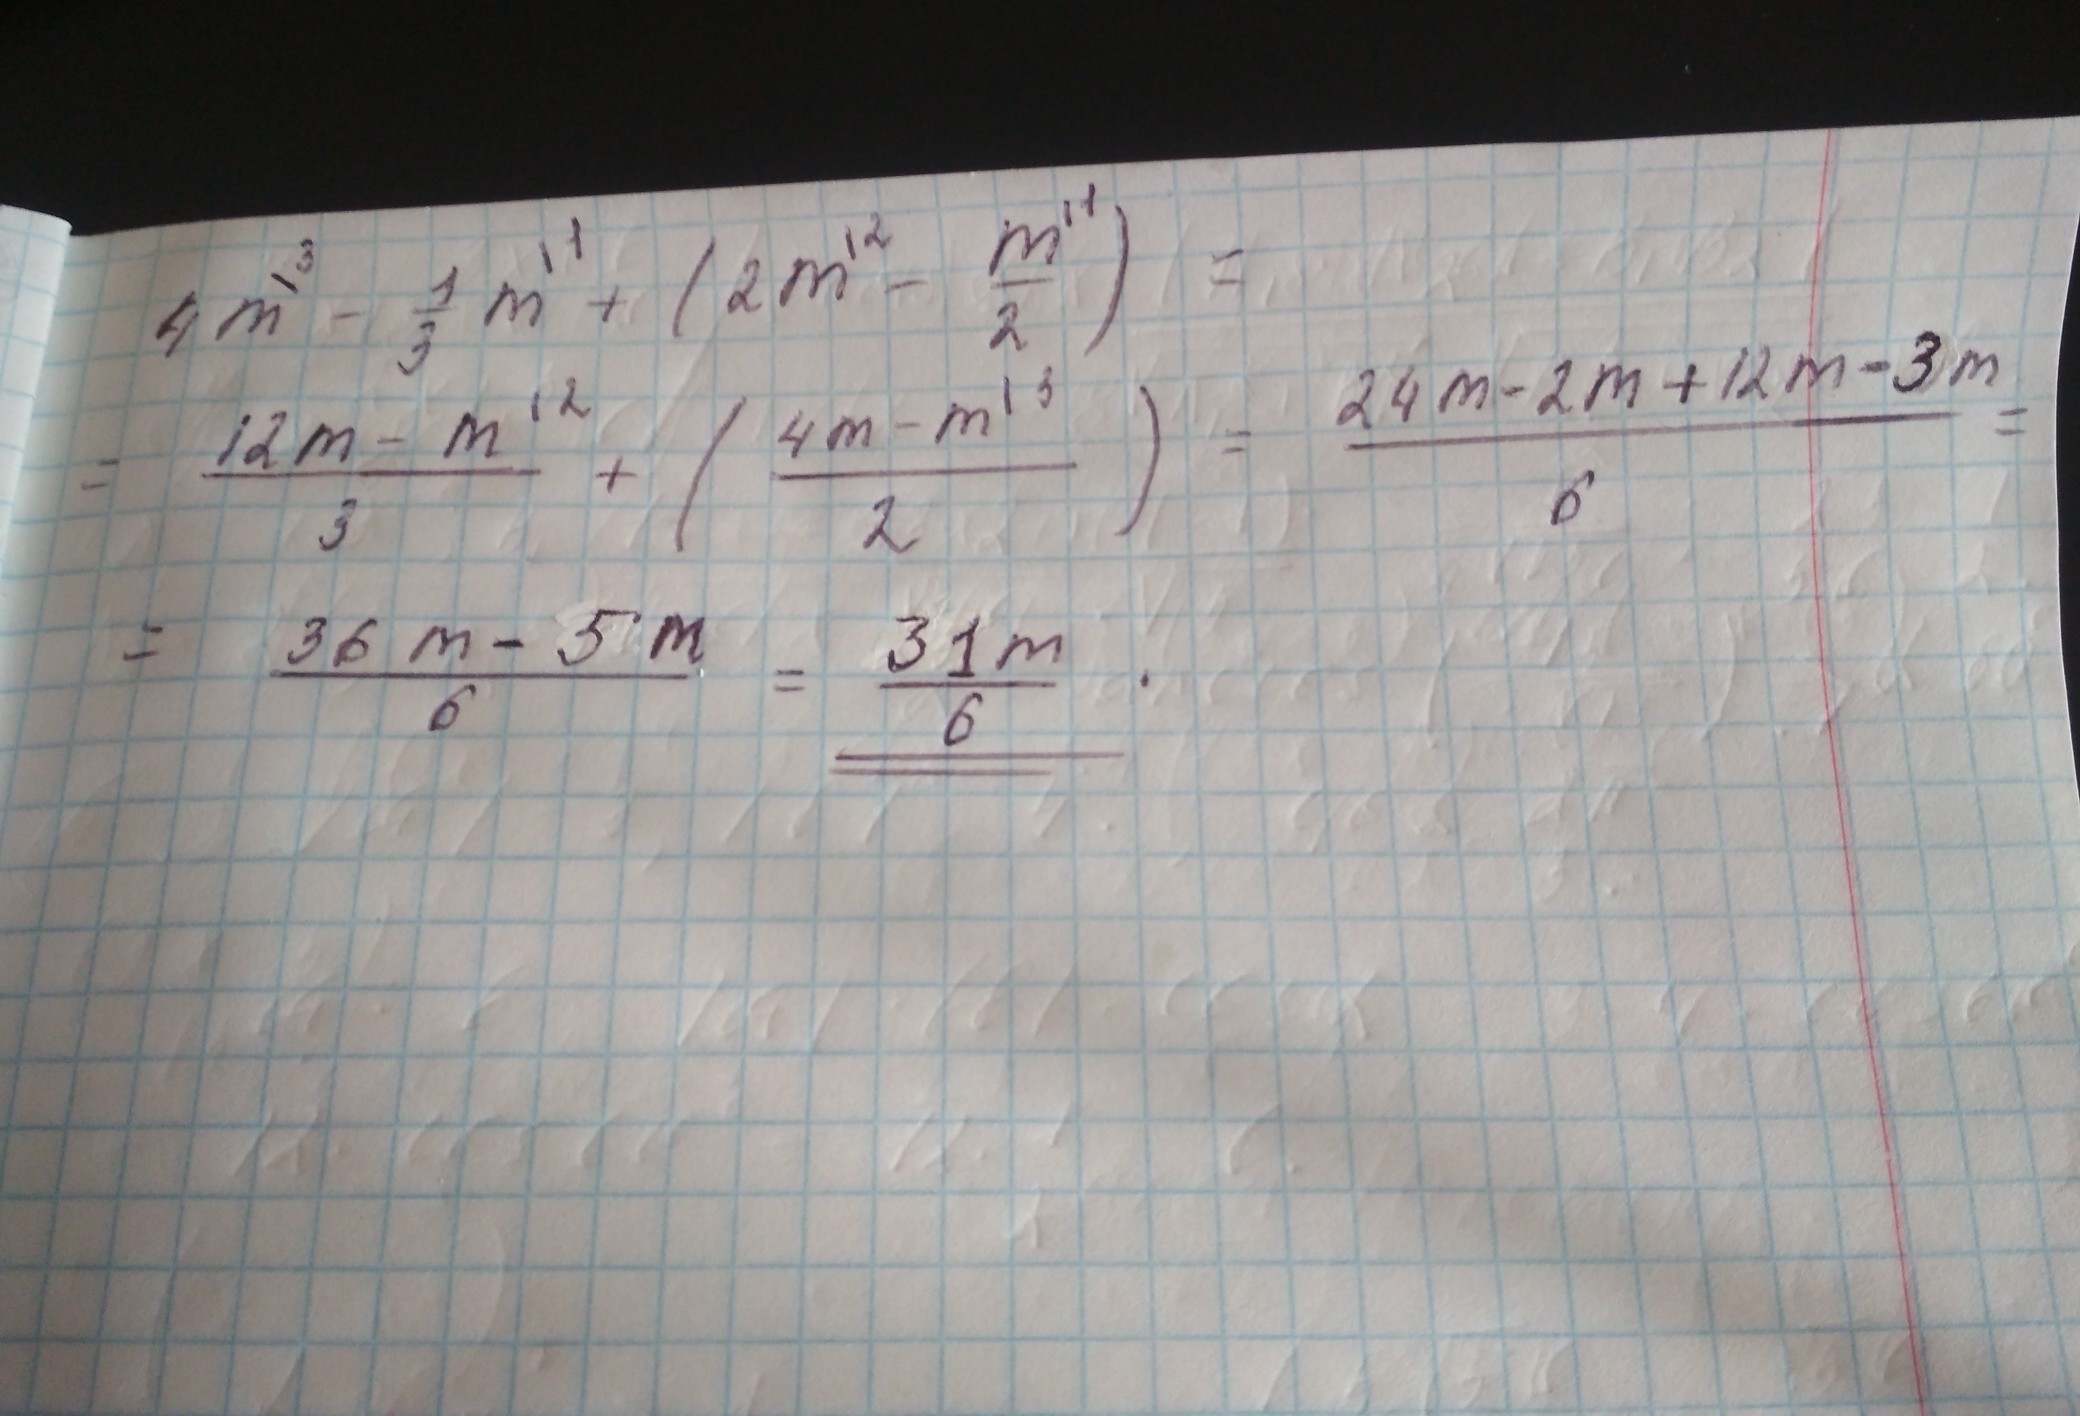 4m^{\3} - \frac{1}{3} m^{\1} + (2m^{\2} - \frac{m^{\1}}{2}) =
= \frac{12m - m^{\2}}{3} + (\frac{4m - m^{\3}}{2}) = \frac{24m - 2m + 12m - 3m}{6} =
= \frac{36m - 5m}{6} = \frac{31m}{6} .